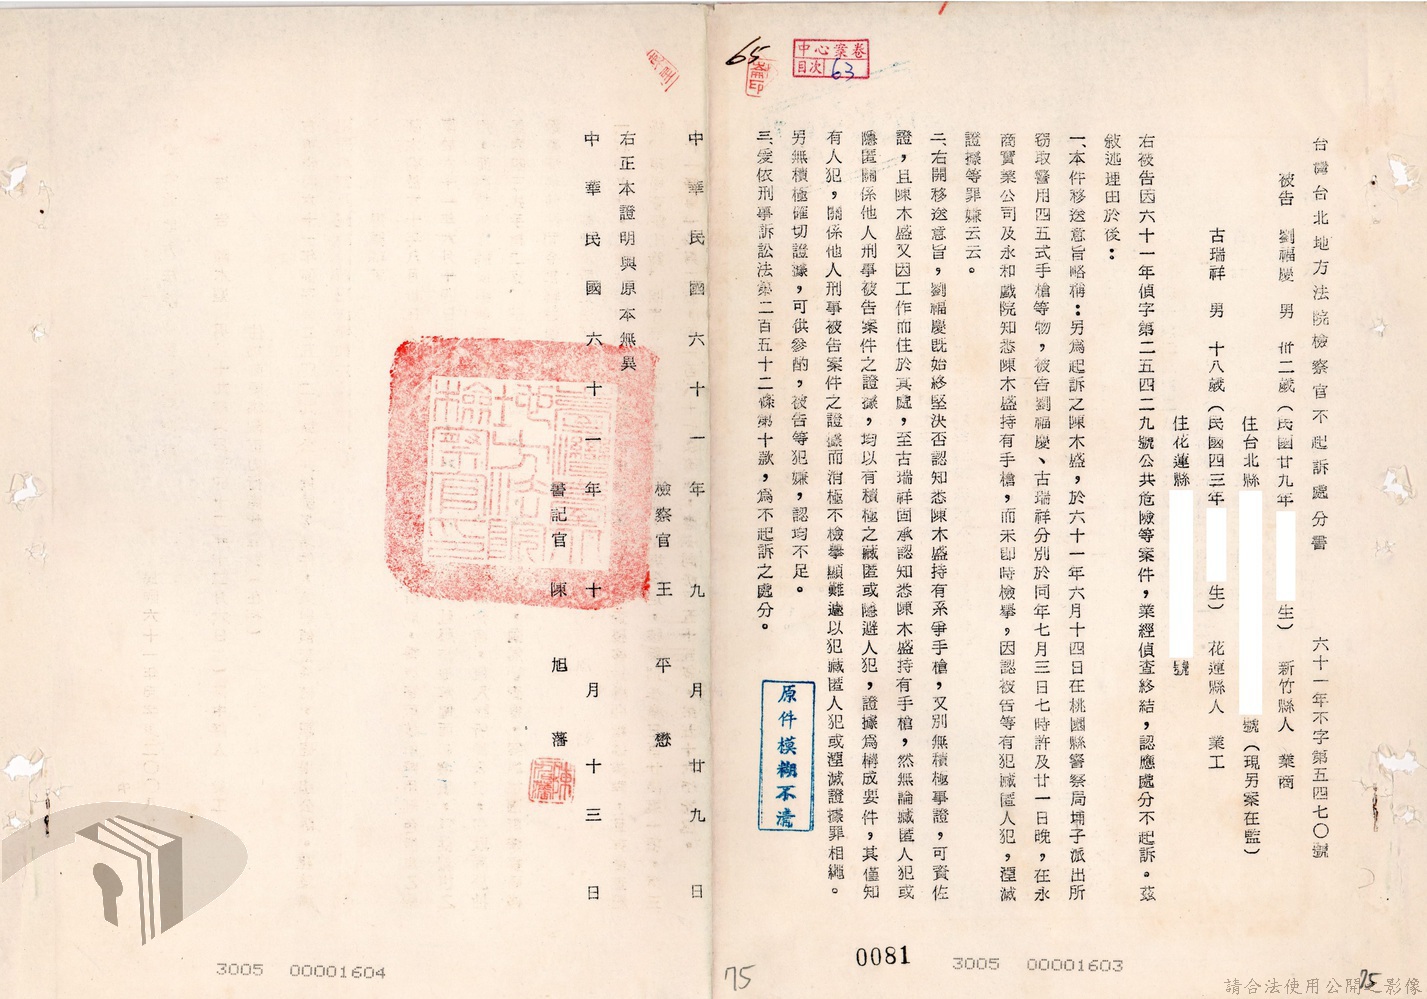 台灣台北地方法院檢察官不起訴處分書
六十一年不字第五四七〇號
被告 劉福慶 男 卅二歲（民國廿九年 生） 新竹縣人 業商
住台北縣 號（現另案在監）
古瑞祥 男 十八歲（民國四三年 生） 花蓮縣人 業工
住花蓮縣 號
右被告因六十一年偵字第二五四二九號公共危險等案件，業經偵查終結，認應處分不起訴。茲
敘述理由於後：
一、本件移送意旨略稱：另爲起訴之陳木盛，於六十一年六月十四日在桃園縣警察局埔子派出所
竊取警用四五式手槍等物，被告劉福慶、古瑞祥分別於同年七月三日七時許及廿一日晚，在永
商實業公司及永和戲院知悉陳木盛持有手槍，而未即時檢舉，因認被告等有犯藏匿人犯，湮滅
證據等罪嫌云云。
二、右開移送意旨，劉福慶既始終堅決否認知悉陳木盛持有系爭手槍，又別無積極事證，可資佐
證，且陳木盛又因工作而住於其處，至古瑞祥固承認知悉陳木盛持有手槍，然無論藏匿人犯或
隱匿關係他人刑事被告案件之證據，均以有積極之藏匿或隱避人犯，證據爲構成要件，其僅知
有人犯，關係他人刑事被告案件之證據而消極不檢舉顯難遽以犯藏匿人犯或湮滅證據罪相繩。
另無積極確切證據，可供參酌，被告等犯嫌，認均不足。
三、爰依刑事訴訟法第二百五十二條第十款，爲不起訴之處分。
中華民國六十一年九月廿九日
檢察官 王平懋
右正本證明與原本無異
中華民國六十一年十月十三日
書記官 陳旭藩
原件模糊不清
中心案卷
目次 63
65
台灣台北地方法院檢察官印
75
0081
3005 00001603
3005 00001604
75
請合法使用公開之影像